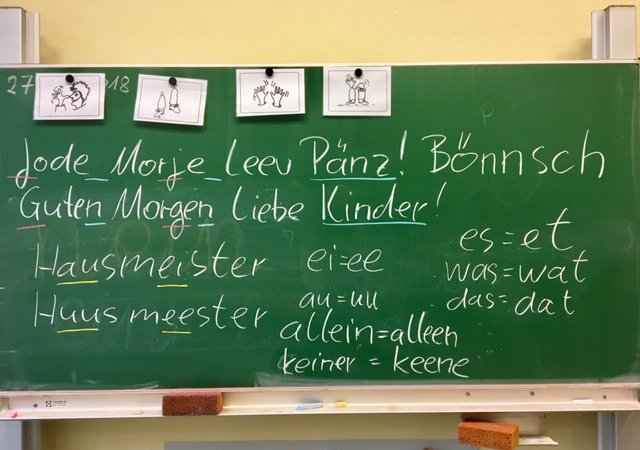 27 18
Jode Morje Leev Pänz! Bönnsch
Guten Morgen Liebe Kinder!
Hausmeister
Huusmeester
ei=ee
au=uu
allein=alleen
keiner = keene
es=et
was=wat
das=dat